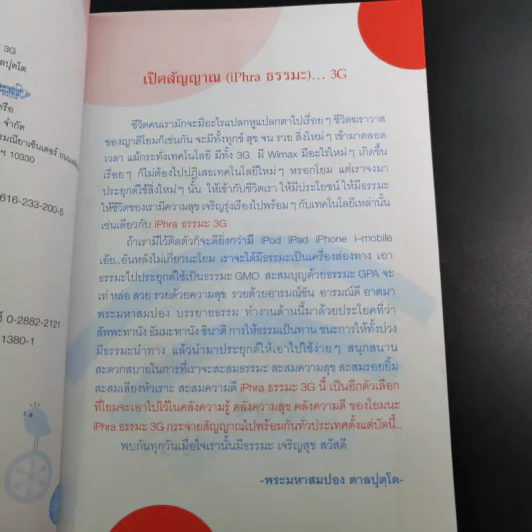 3G
ลปุตโต
ครือ
จำกัด
รมณียาเซ็นเตอร์
ฯ 10330
616-233-200-5
์ 0-2882-2121
1380-1
เปิดสัญญาณ (iPhra ธรรมะ)... 3G
ชีวิตคนเรามักจะมีอะไรแปลกหูแปลกตาไปเรื่อยๆ ชีวิตฆราวาส
ของญาติโยมก็เช่นกัน จะมีทั้งทุกข์ สุข จน รวย สิ่งใหม่ๆ เข้ามาตลอด
เวลา แม้กระทั่งเทคโนโลยี มีทั้ง 3G มี Wimax มีอะไรใหม่ๆ เกิดขึ้น
เรื่อยๆ ก็ไม่ต้องไปปฏิเสธเทคโนโลยีใหม่ๆ หรอกโยม แต่เราจงมา
ประยุกต์ใช้สิ่งใหม่ๆ นั้น ให้เข้ากับชีวิตเรา ให้มีประโยชน์ ให้มีธรรมะ
ให้ชีวิตของเรามีความสุข เจริญรุ่งเรืองไปพร้อมๆ กับเทคโนโลยีเหล่านั้น
เช่นเดียวกับ iPhra ธรรมะ 3G
ถ้าเรามีไว้ติดตัวก็จะดียิ่งกว่ามี iPod iPad iPhone i-mobile
เอ๊ย..อันหลังไม่เกี่ยวนะโยม เราจะได้มีธรรมะเป็นเครื่องส่องทาง เอา
ธรรมะไปประยุกต์ใช้เป็นธรรมะ GMO สะสมบุญด้วยธรรมะ GPA จะ
เท่ หล่อ สวย รวยด้วยความสุข รวยด้วยอารมณ์ขัน อารมณ์ดี อาตมา
พระมหาสมปอง บรรยายธรรม ทำงานด้านนี้มาด้วยประโยคที่ว่า
สัพพะทานัง ธัมมะทานัง ชินาติ การให้ธรรมเป็นทาน ชนะการให้ทั้งปวง
มีธรรมะนำทาง แล้วนำมาประยุกต์ให้เอาไปใช้ง่ายๆ สนุกสนาน
สะดวกสบายในการที่เราจะสะสมธรรมะ สะสมความสุข สะสมรอยยิ้ม
สะสมเสียงหัวเราะ สะสมความดี iPhra ธรรมะ 3G นี้ เป็นอีกตัวเลือก
ที่โยมจะเอาไปไว้ในคลังความรู้ คลังความสุข คลังความดี ของโยมนะ
iPhra ธรรมะ 3G กระจายสัญญาณไปพร้อมกันทั่วประเทศตั้งแต่บัดนี้..
พบกันทุกวันเมื่อใจเรานั้นมีธรรมะ เจริญสุข สวัสดี
-พระมหาสมปอง ตาลปุตฺโต-